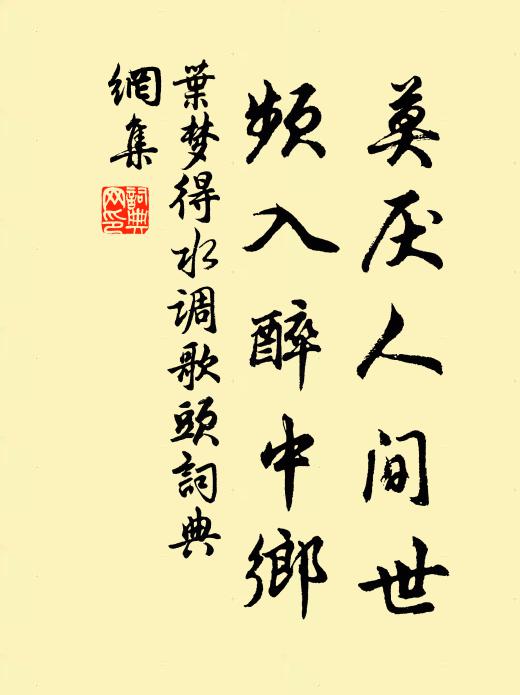 莫厌人间世
频入醉中鄉
葉梦得水调歌頭詞典
網集
詞典
网印